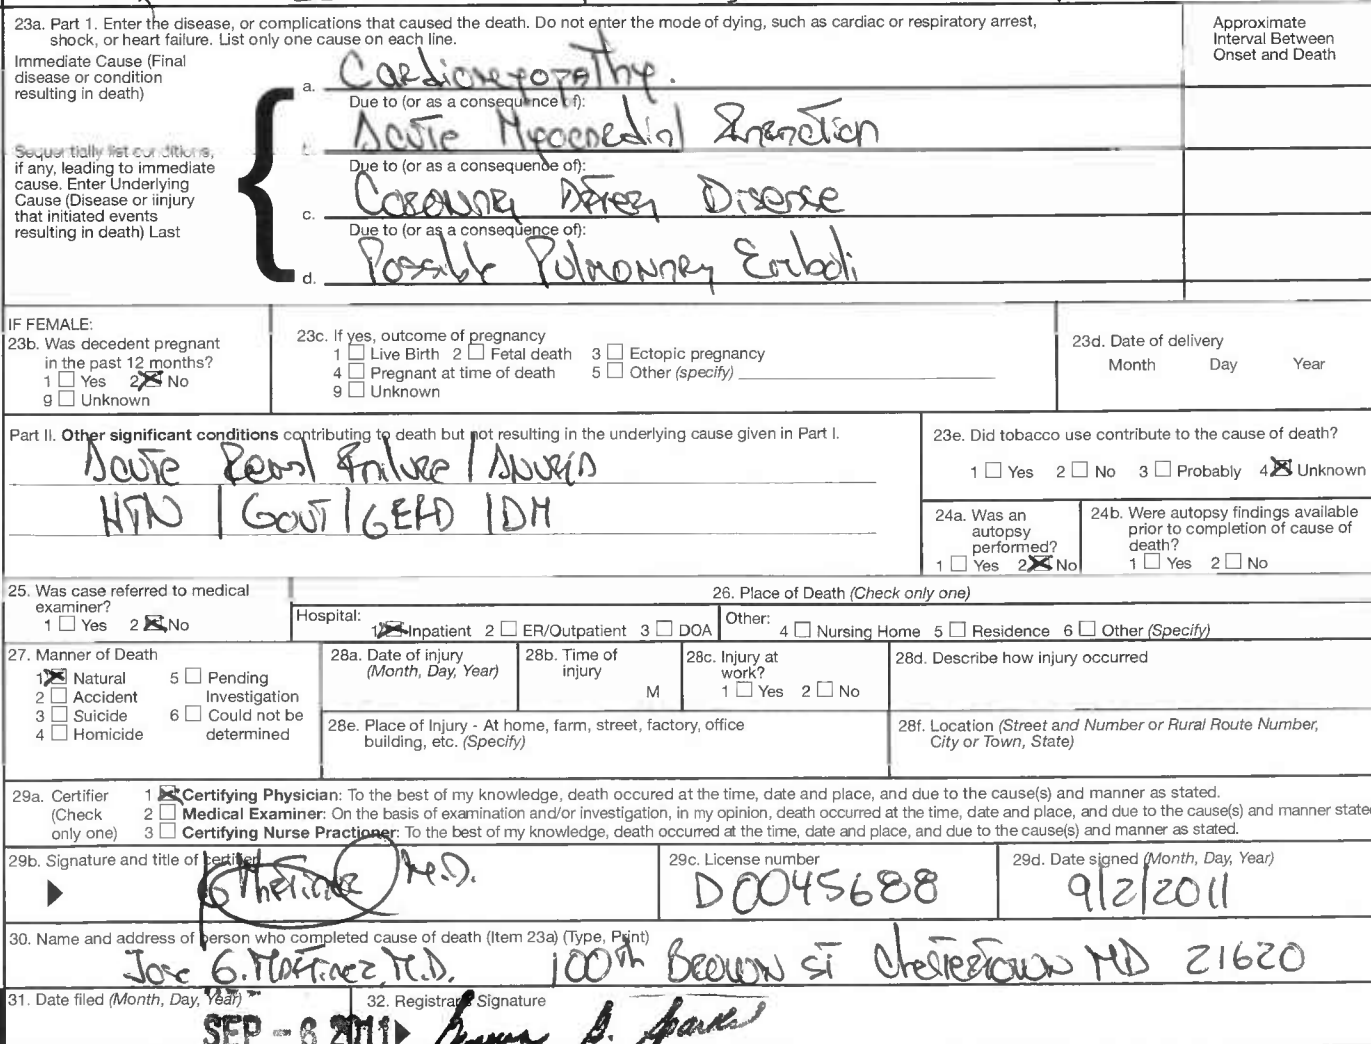 23a. Part 1. Enter the disease, or complications that caused the death. Do not enter the mode of dying, such as cardiac or respiratory arrest,
shock, or heart failure. List only one cause on each line.
Approximate
Interval Between
Onset and Death
Immediate Cause (Final
disease or condition
resulting in death)
a. Cardiomyopathy.
Due to (or as a consequence of):
Acute Myocardial Infarction
Sequentially list conditions,
if any, leading to immediate
cause. Enter Underlying
Cause (Disease or iinjury
that initiated events
resulting in death) Last
Due to (or as a consequence of):
c. Coronary Artery Disease
Due to (or as a consequence of):
d. Possible Pulmonary Emboli
IF FEMALE:
23b. Was decedent pregnant
in the past 12 months?
1 Yes 2 No
9 Unknown
23c. If yes, outcome of pregnancy
1 Live Birth 2 Fetal death 3 Ectopic pregnancy
4 Pregnant at time of death 5 Other (specify)
9 Unknown
23d. Date of delivery
Month Day Year
Part II. Other significant conditions contributing to death but not resulting in the underlying cause given in Part I.
Acute Renal Failure / Anuria
HTN / Gout / GERD / DM
23e. Did tobacco use contribute to the cause of death?
1 Yes 2 No 3 Probably 4 Unknown
24a. Was an
autopsy
performed?
1 Yes 2 No
24b. Were autopsy findings available
prior to completion of cause of
death?
1 Yes 2 No
25. Was case referred to medical
examiner?
1 Yes 2 No
26. Place of Death (Check only one)
Hospital: 1 Inpatient 2 ER/Outpatient 3 DOA
Other: 4 Nursing Home 5 Residence 6 Other (Specify)
27. Manner of Death
1 Natural 5 Pending
2 Accident Investigation
3 Suicide 6 Could not be
4 Homicide determined
28a. Date of injury
(Month, Day, Year)
28b. Time of
injury
M
28c. Injury at
work?
1 Yes 2 No
28d. Describe how injury occurred
28e. Place of Injury - At home, farm, street, factory, office
building, etc. (Specify)
28f. Location (Street and Number or Rural Route Number,
City or Town, State)
29a. Certifier
(Check
only one)
1 Certifying Physician: To the best of my knowledge, death occured at the time, date and place, and due to the cause(s) and manner as stated.
2 Medical Examiner: On the basis of examination and/or investigation, in my opinion, death occurred at the time, date and place, and due to the cause(s) and manner state
3 Certifying Nurse Practioner: To the best of my knowledge, death occurred at the time, date and place, and due to the cause(s) and manner as stated.
29b. Signature and title of certifier
G Martinez M.D.
29c. License number
D0045688
29d. Date signed (Month, Day, Year)
9/2/2011
30. Name and address of person who completed cause of death (Item 23a) (Type, Print)
Jose G. Martinez, M.D. 100th Brown St Chestertown MD 21620
31. Date filed (Month, Day, Year)
SEP - 6 2011
32. Registrars Signature